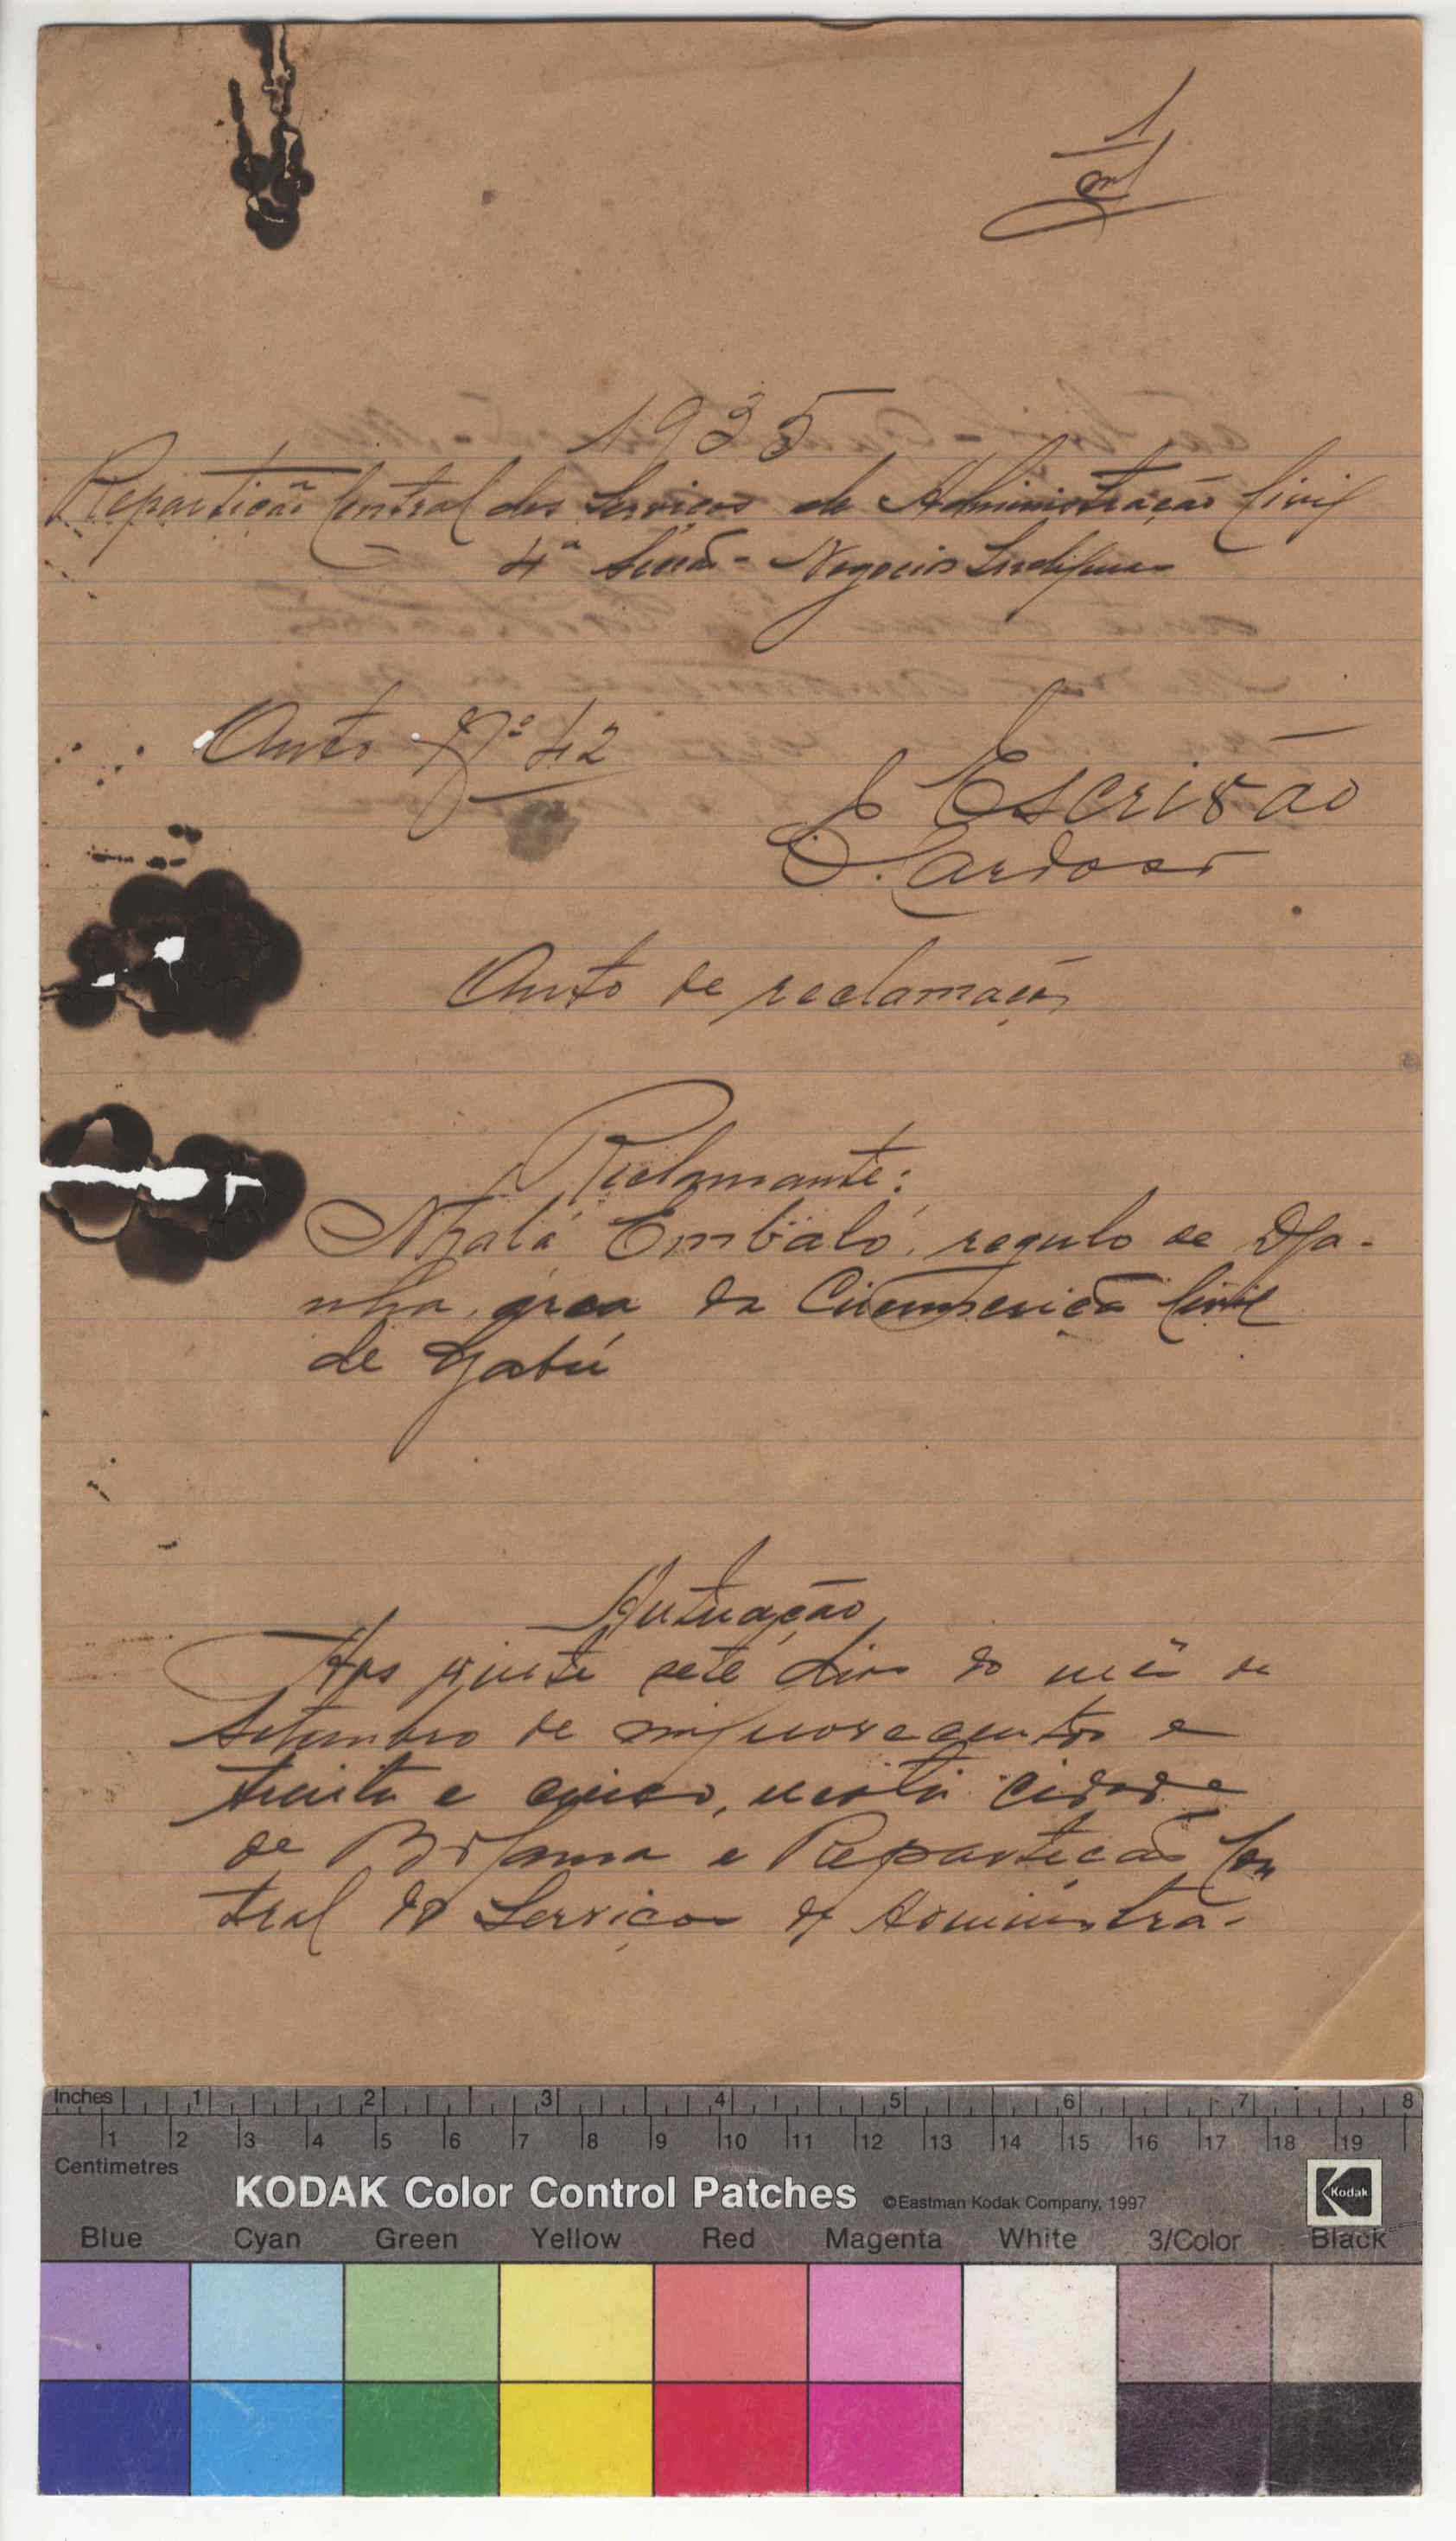 1
1935
Repartição Central dos Serviços de Administração Civil
4ª Secção - Negocios Indigenas
Auto Nº 42
O Escrivão
Cardoso
Auto de reclamação
Reclamante:
Embaló, regulo de Dja-
nha, area da Circunscrição Civil
de Gabú
Autuação
Aos vinte sete dias do mês de
Setembro de mil novecentos e
trinta e cinco, nesta cidade
de Bolama e Repartição Cen
tral dos Serviços de Administra-
Inches 1 2 3 4 5 6 7 8
1 2 3 4 5 6 7 8 9 10 11 12 13 14 15 16 17 18 19
Centimetres
KODAK Color Control Patches ©Eastman Kodak Company, 1997 Kodak
Blue Cyan Green Yellow Red Magenta White 3/Color Black